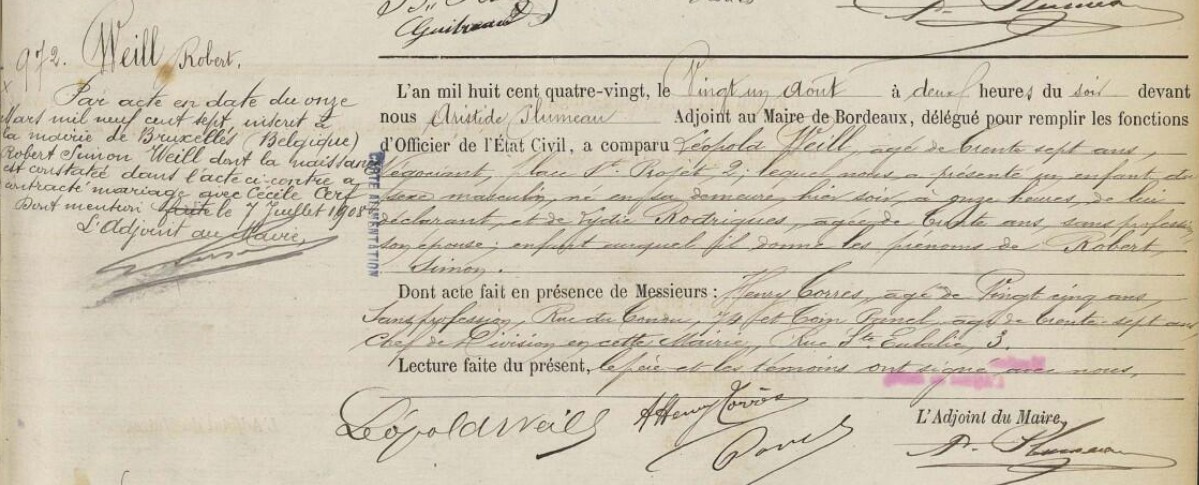 Guibreaud
972. Weill Robert,
Par acte en date du onze
Mars mil neuf cent sept inscrit à
la mairie de Bruxelles (Belgique)
Robert Simon Weill dont la naissance
est constatée dans l'acte ci-contre a
contracté mariage avec Cécile Cerf
Dont mention faite le 7 Juillet 1908
L'Adjoint au Maire,
CARTE ALIMENTATION
L'an mil huit cent quatre-vingt, le Vingt un Août à deux heures du soir devant
nous Aristide Plumeau Adjoint au Maire de Bordeaux, délégué pour remplir les fonctions
d'Officier de l'État Civil, a comparu Léopold Weill, agé de trente sept ans,
Négociant, place St. Projét 2; lequel nous a présenté un enfant du
sexe masculin, né en sa demeure, hier soir, à onze heures, de lui
déclarant, et de Lydie Rodrigues, agée de trente ans, sans profession,
son épouse; enfant auquel il donne les prénoms de Robert,
Simon.
Dont acte fait en présence de Messieurs : Henry Torrès, agé de Vingt cinq ans,
Sans profession, Rue du 74 et agé de trente-sept ans
Chef de Division en cette Mairie, Rue Ste Eulalie, 3.
Lecture faite du présent, le père et les témoins ont signé avec nous,
Léopold Weill
A Henry Torrès
L'Adjoint du Maire,
A. Plumeau